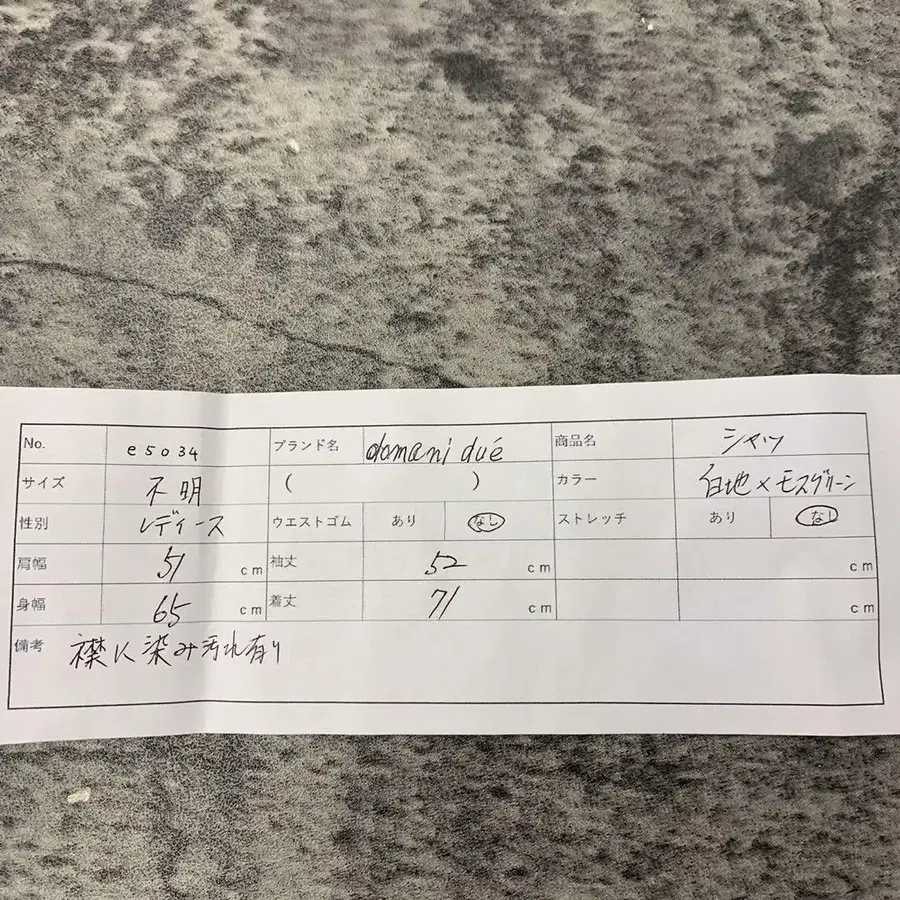 No. e5034 ブランド名 domani dué 商品名 シャツ
サイズ 不明 ( ) カラー 白地×モスグリーン
性別 レディース ウエストゴム あり なし ストレッチ あり なし
肩幅 51 cm 袖丈 52 cm cm
身幅 65 cm 着丈 71 cm cm
備考 襟に染み汚れ有り